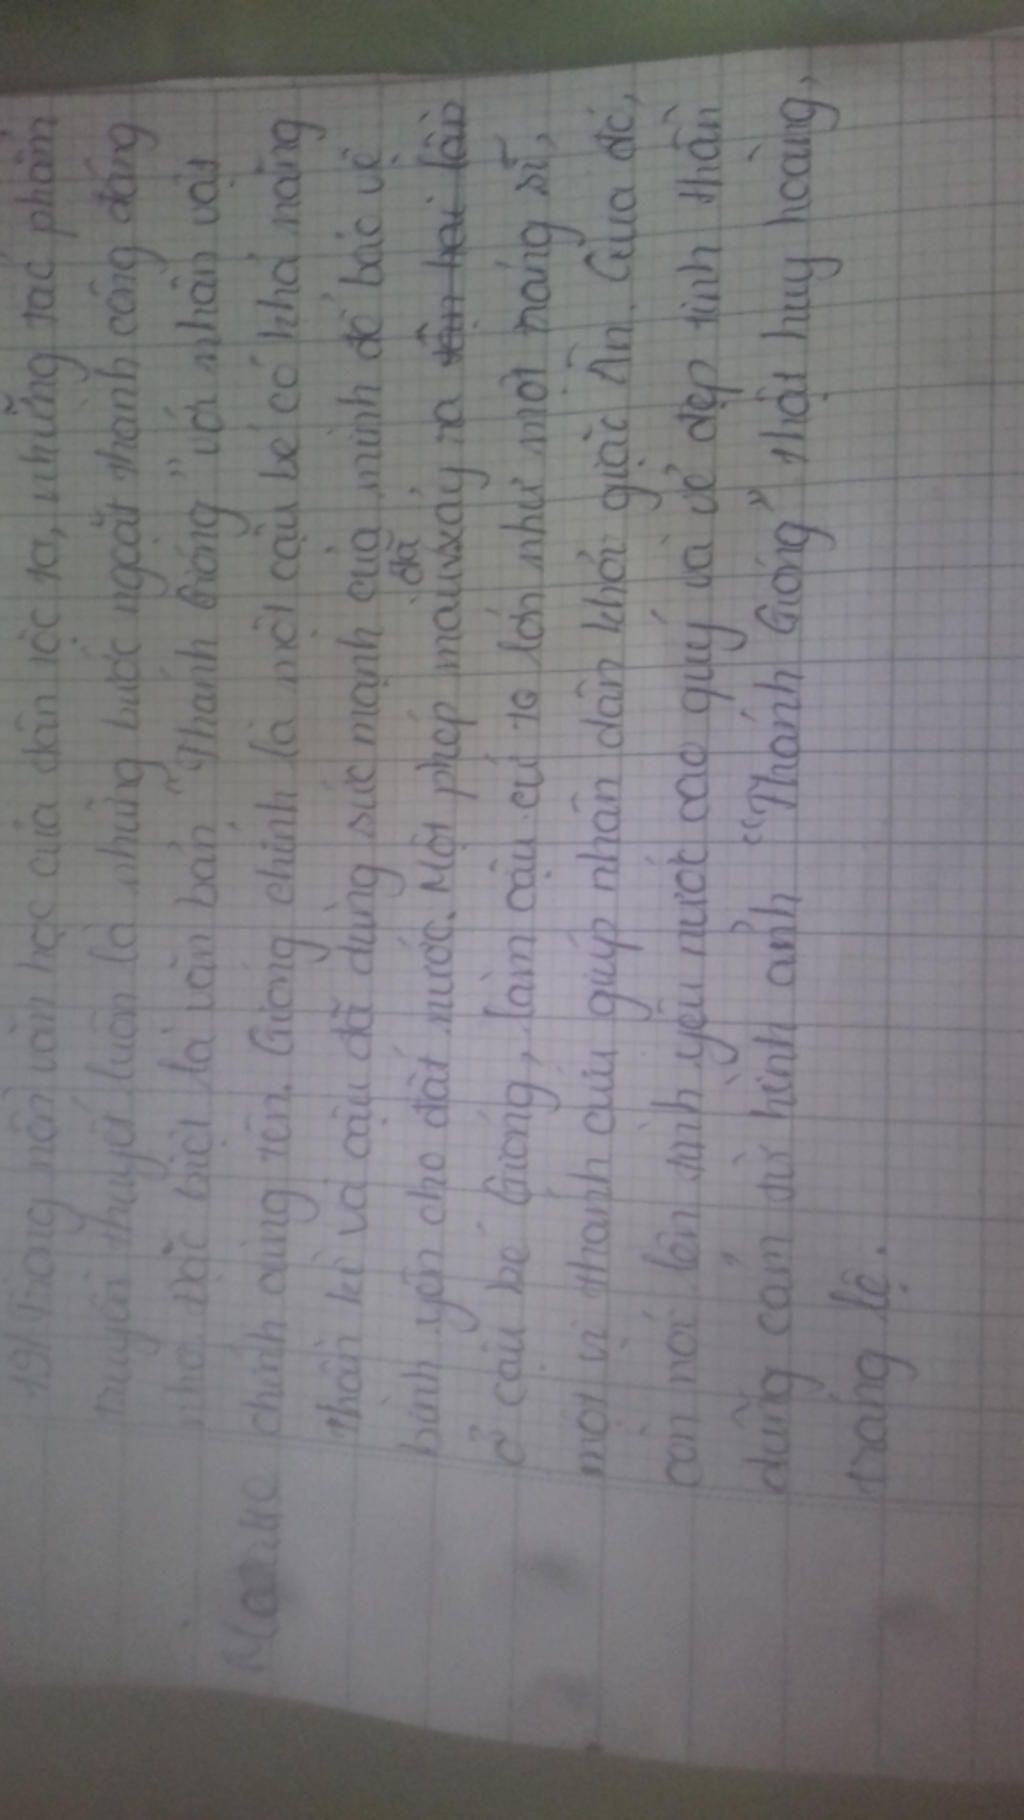 19) Trong nền văn học của dân tộc ta, những tác phẩm
truyền thuyết luôn là những bước ngoặt thành công đáng
nhớ. Đặc biệt là văn bản "Thánh Gióng" với nhân vật
chính cùng tên. Gióng chính là một cậu bé có khả năng
thần kì và cậu đã dùng sức mạnh của mình để bác về
bình yên cho đất nước. Một phép màu đã xảy ra
ở cậu bé Gióng, làm cậu cứ to lớn như một tráng sĩ,
một vị thánh cứu giúp nhân dân khỏi giặc Ân. Qua đó,
còn nói lên tình yêu nước cao quý và vẻ đẹp tinh thần
dũng cảm từ hình ảnh "Thánh Gióng" thật huy hoàng,
tráng lệ.